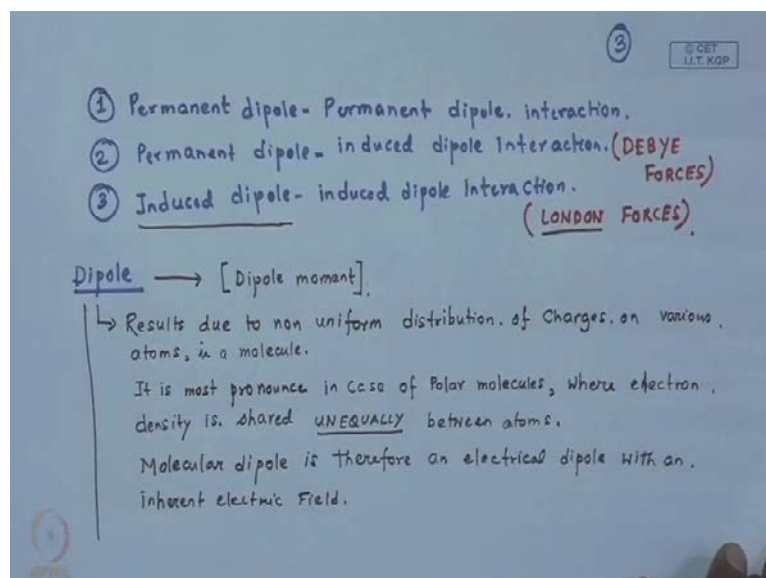 3
© CET
I.I.T. KGP
1 Permanent dipole - Permanent dipole. interaction.
2 Permanent dipole - induced dipole Interaction. (DEBYE
FORCES)
3 Induced dipole - induced dipole Interaction.
(LONDON FORCES).
Dipole → [Dipole moment].
↳ Results due to non uniform distribution. of Charges. on various.
atoms, in a molecule.
It is most pronounce in case of Polar molecules, where electron.
density is. shared UNEQUALLY between atoms.
Molecular dipole is therefore an electrical dipole with an.
inherent electric Field.